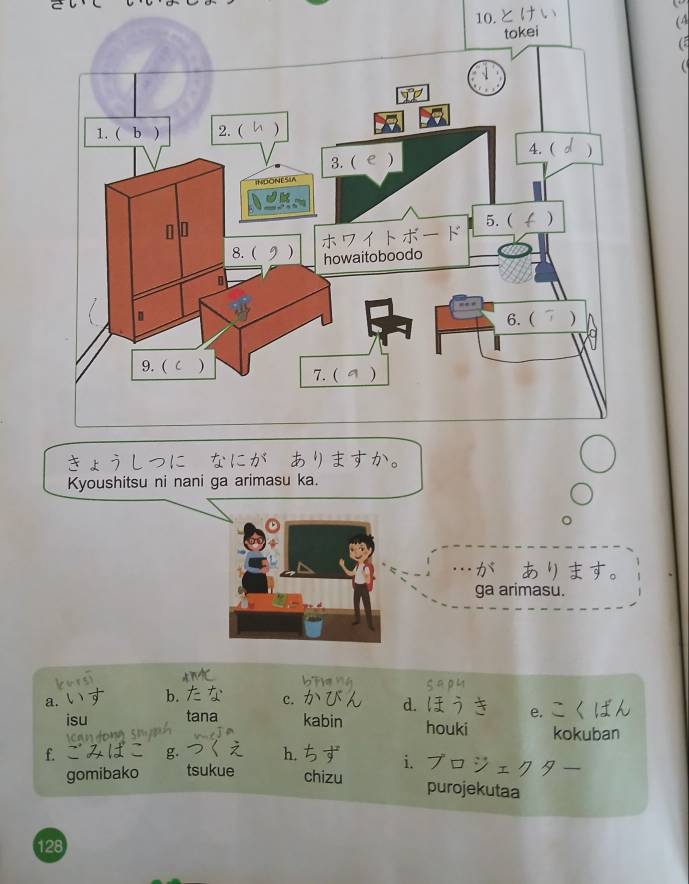 10. とけい
tokei
1. ( b )
2. ( h )
3. ( e )
4. ( d )
INDONESIA
5. ( f )
ホワイトボード
howaitoboodo
8. ( g )
6. ( i )
9. ( c )
7. ( a )
きょうしつに なにが ありますか。
Kyoushitsu ni nani ga arimasu ka.
…が あります。
ga arimasu.
kursi
sapu
a. いす
b. たな
c. かびん
d. ほうき
e. こくばん
isu
tana
kabin
houki
kokuban
meja
f. ごみばこ
g. つくえ
h. ちず
i. プロジェクター
gomibako
tsukue
chizu
purojekutaa
128